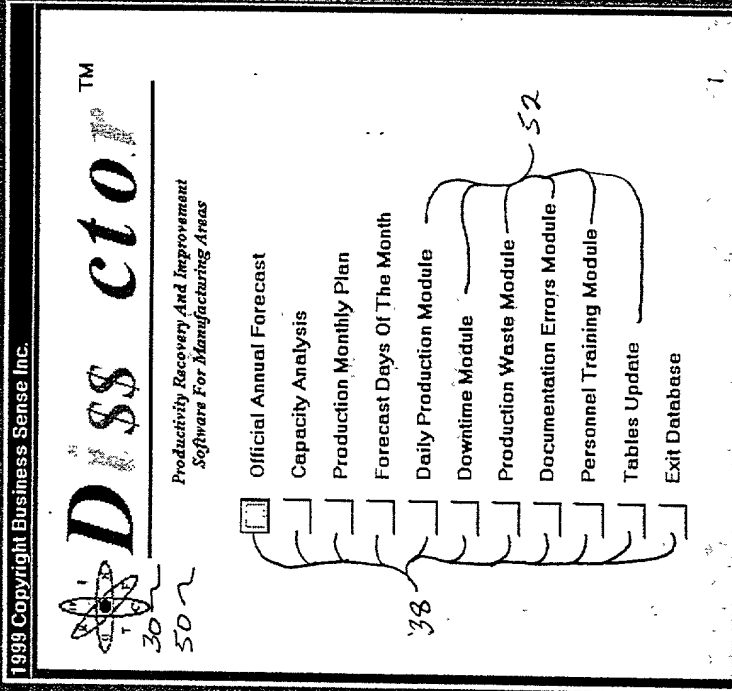 1999 Copyright Business Sense Inc.
Di$$ ctor TM
Productivity Recovery And Improvement
Software For Manufacturing Areas
30
50
Official Annual Forecast
Capacity Analysis
Production Monthly Plan
Forecast Days Of The Month
Daily Production Module
Downtime Module
Production Waste Module
Documentation Errors Module
Personnel Training Module
Tables Update
Exit Database
38
52